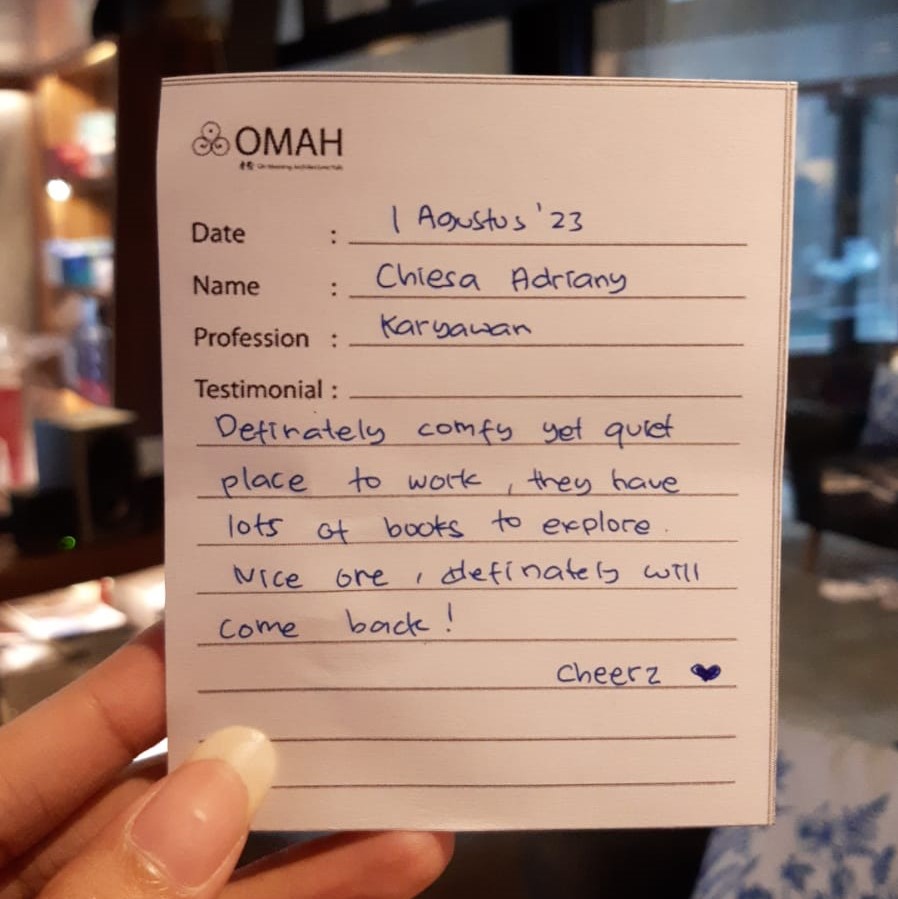 OMAH
Date : 1 Agustus '23
Name : Chiesa Adriany
Profession : Karyawan
Testimonial :
Definately comfy yet quiet
place to work, they have
lots of books to explore.
Nice one, definately will
come back!
Cheerz